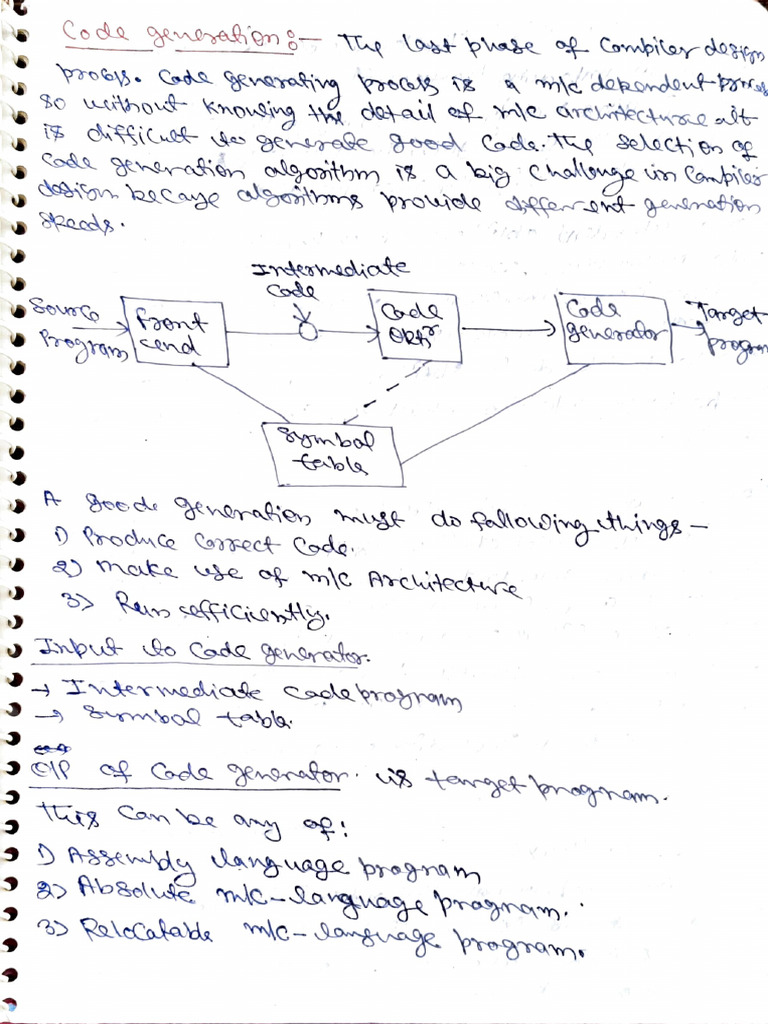 Code generation:- The last phase of Compiler design
process. Code generating process is a m/c dependent process
so without knowing the detail of m/c architecture it
is difficult to generate good code. The selection of
Code generation algorithm is a big challenge in Compiler
design because algorithms provide different generation
speeds.
Intermediate
Code
Source
Program
Front
end
Code
Opti
Code
generator
Target
program
Symbal
table
A goode generation must do following things -
1) Produce Correct Code.
2) Make use of m/c Architecture
3) Run efficiently.
Input to Code generator.
→ Intermediate code program
→ Symbal table.
O/P of Code generator. is target program.
This can be any of:
1) Assembly language program
2) Absolute m/c-language program.
3) Relocatable m/c-language program.